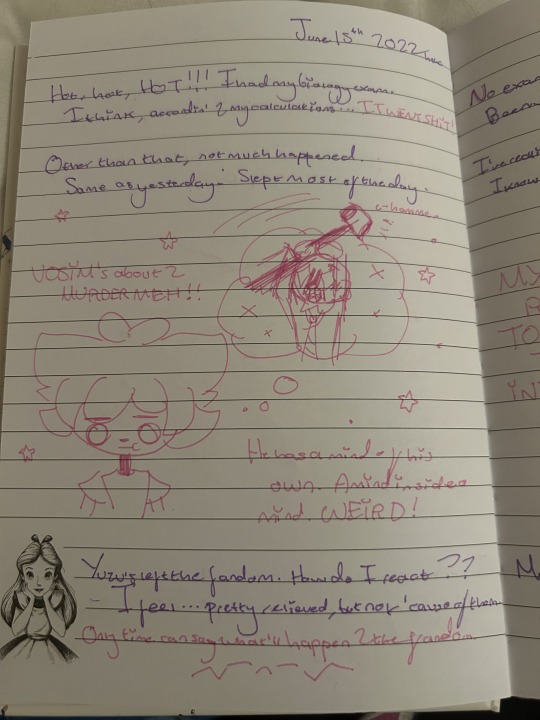 June 15th 2022, Tue
Hot, hot, HOT!!! I had my biology exam.
I think, accordin' 2 my calculations... IT WENT SHIT!
Other than that, not much happened.
Same as yesterday. Slept most of the day.
c-hammer
VOSIM's about 2
MURDER MEH!!
He has a mind of his
own. A mind inside a
mind. WEIRD!
Yuzu's left the fandom. How do I react??
- I feel... pretty relieved, but not 'cause of them
Only time can say what'll happen 2 the fandom
No exam
I know
MY
TO
IN